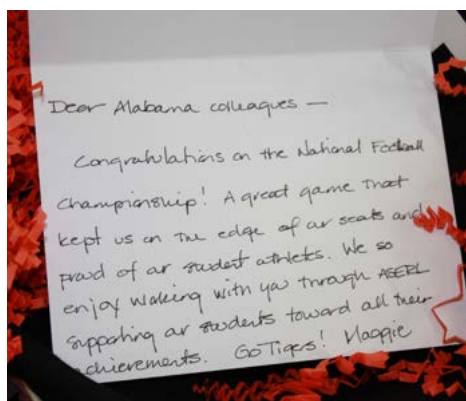 Dear Alabama colleagues —
Congratulations on the National Football
Championship! A great game that
kept us on the edge of our seats and
proud of our student athletes. We so
enjoy working with you through ASERL
supporting our students toward all their
achievements. Go Tigers! Maggie